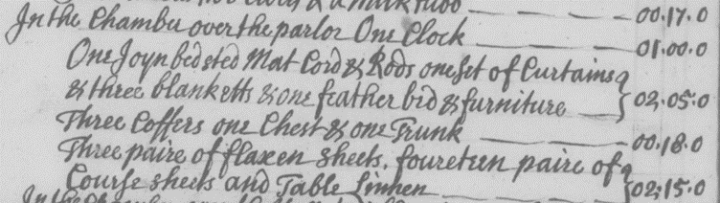 & a milk tubb — 00.17.0
In the Chamber over the parlor One Clock — 01.00.0
One Joyn bedsted Mat Cord & Rods one set of Curtains
& three blanketts & one feather bed & furniture — } 02.05.0
Three Coffers one Chest & one Trunk — 00.18.0
Three paire of flaxen sheets, foureteen paire of
Course sheets and Table Linnen — } 02.15.0
In the Chamber over the